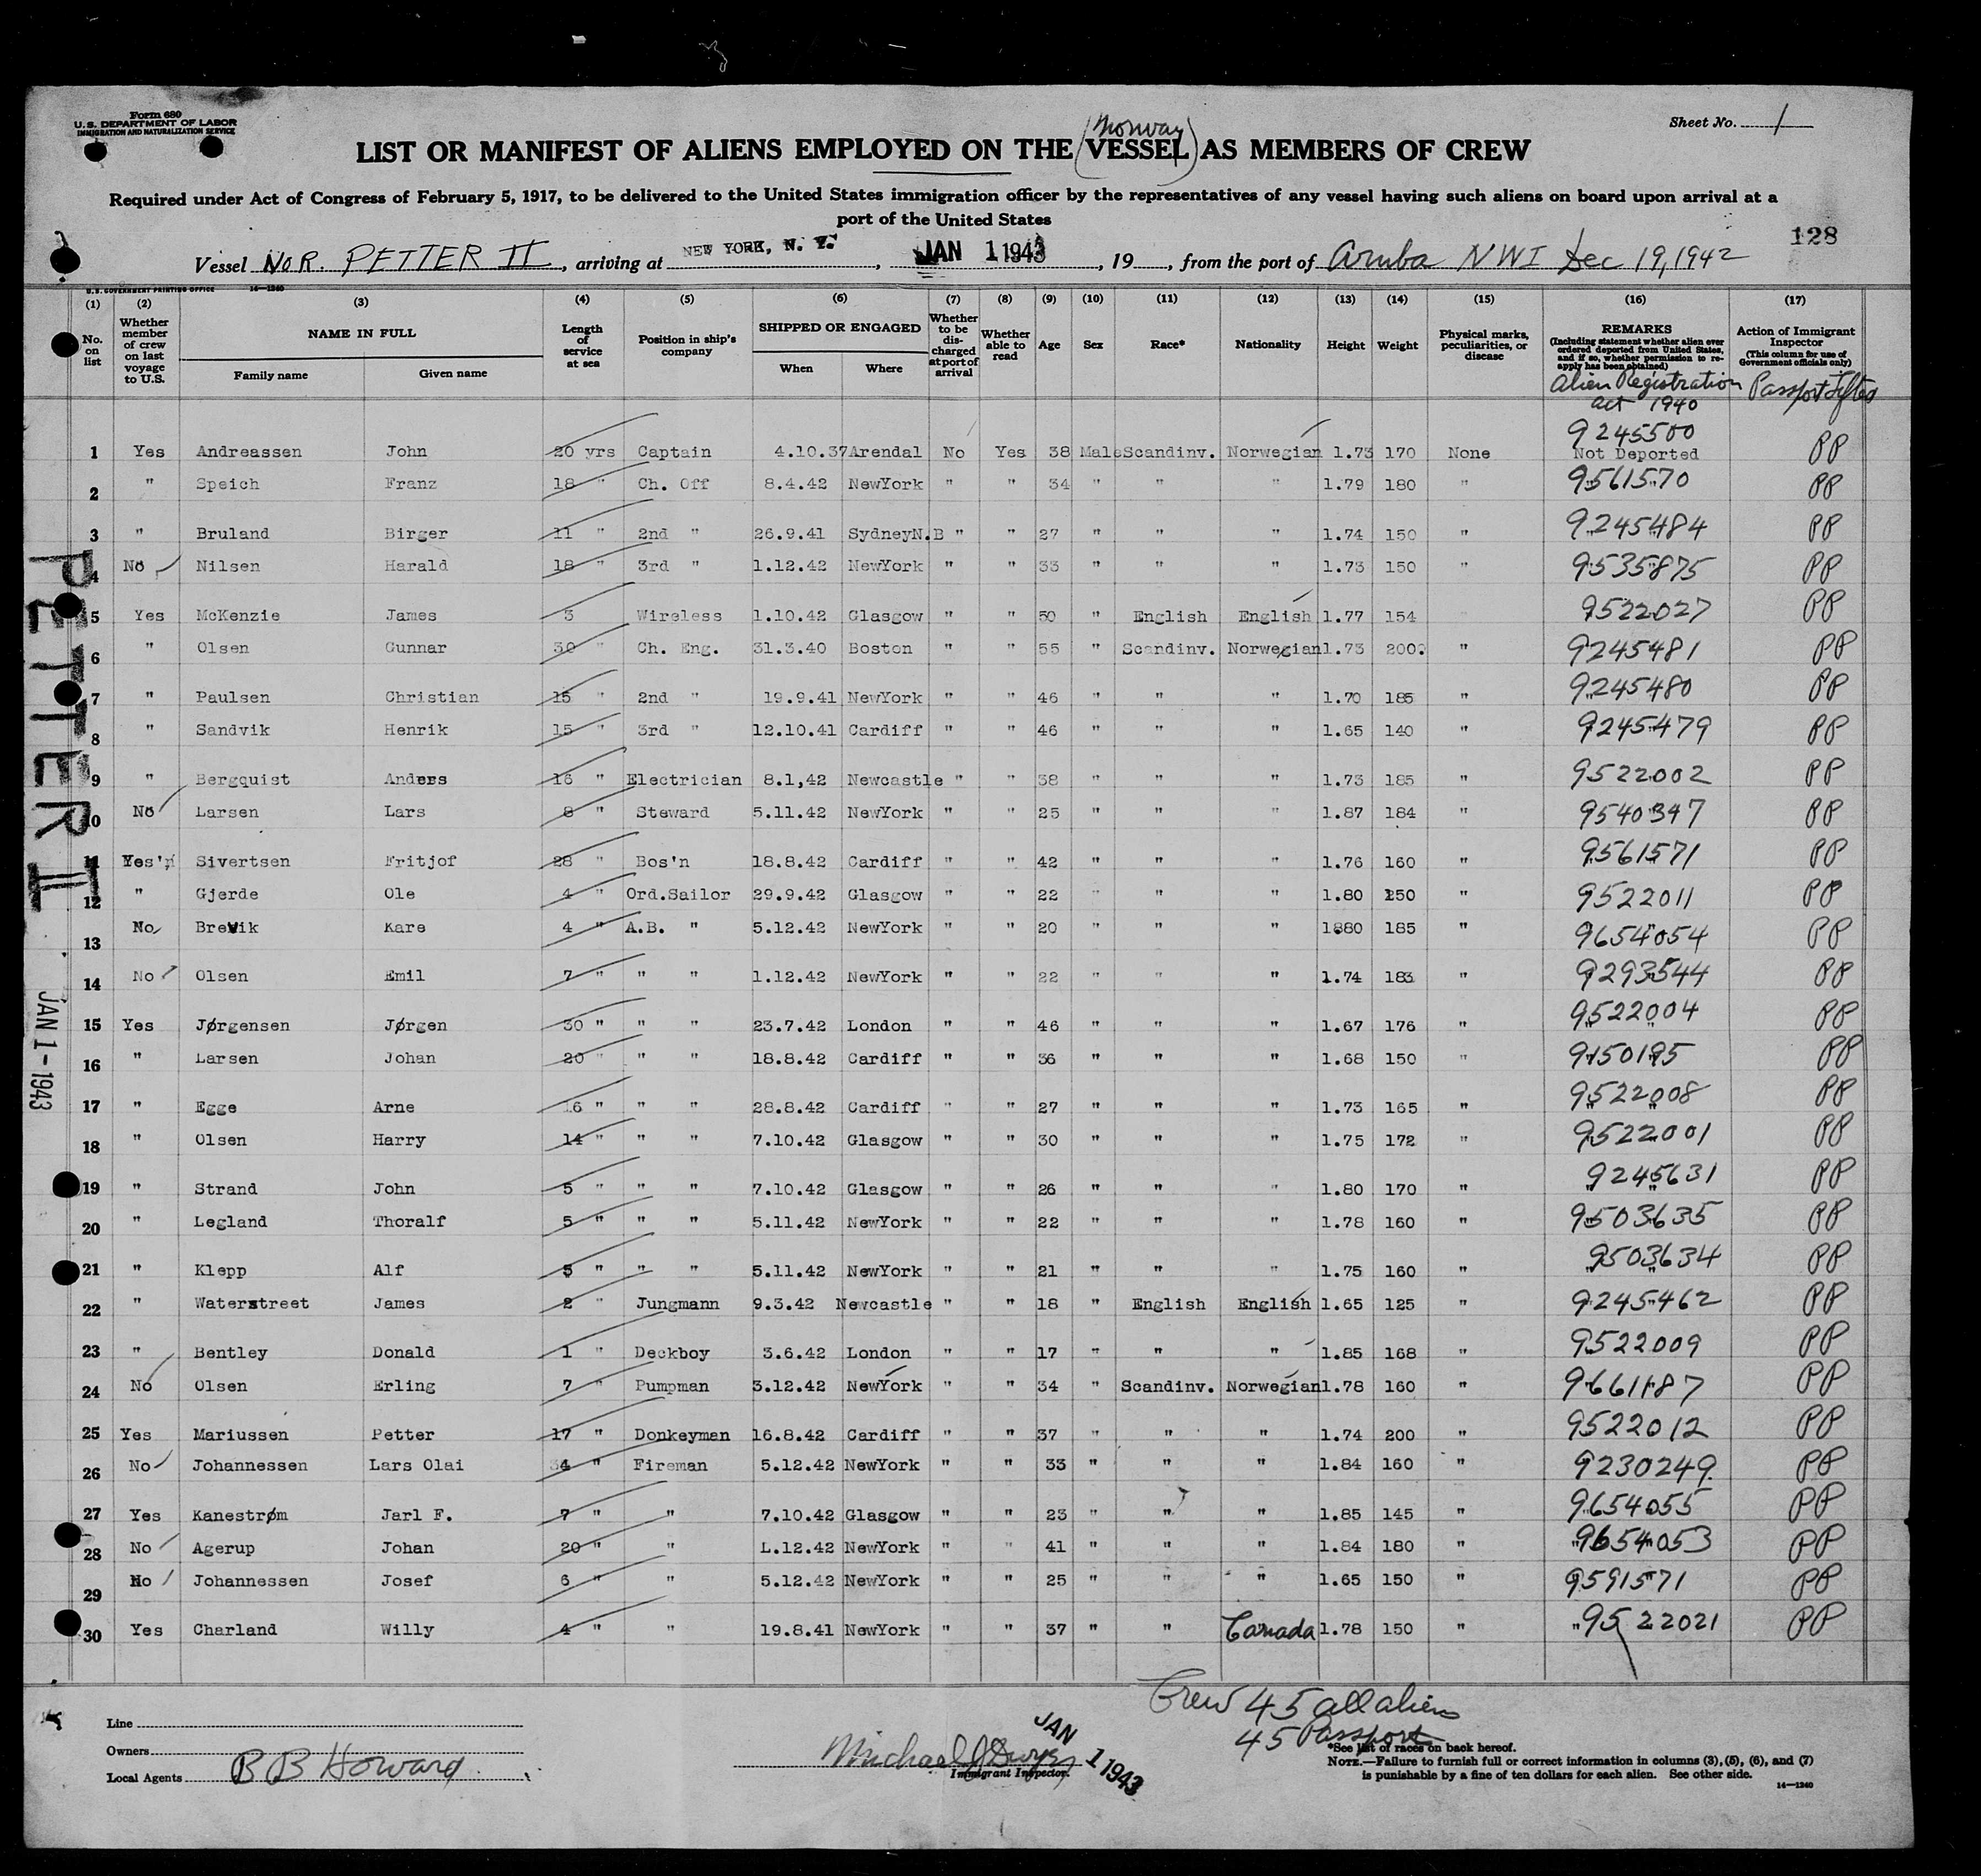 Form 680
U.S. DEPARTMENT OF LABOR
IMMIGRATION AND NATURALIZATION SERVICE
Sheet No. 1
(Norway)
LIST OR MANIFEST OF ALIENS EMPLOYED ON THE VESSEL AS MEMBERS OF CREW
Required under Act of Congress of February 5, 1917, to be delivered to the United States immigration officer by the representatives of any vessel having such aliens on board upon arrival at a
port of the United States
128
Vessel NOR. PETTER II, arriving at NEW YORK, N. Y., JAN 1 1943, 19, from the port of Aruba NWI Dec 19, 1942
U.S. GOVERNMENT PRINTING OFFICE 14—1240
(1) (2) (3) (4) (5) (6) (7) (8) (9) (10) (11) (12) (13) (14) (15) (16) (17)
No. on list | Whether member of crew on last voyage to U.S. | NAME IN FULL Family name Given name | Length of service at sea | Position in ship's company | SHIPPED OR ENGAGED When Where | Whether to be discharged at port of arrival | Whether able to read | Age | Sex | Race* | Nationality | Height | Weight | Physical marks, peculiarities, or disease | REMARKS (Including statement whether alien ever ordered deported from United States, and if so, whether permission to reapply has been obtained) | Action of Immigrant Inspector (This column for use of Government officials only)
Alien Registration act 1940 Passport Lifted
1 Yes Andreassen John 20 yrs Captain 4.10.37 Arendal No Yes 38 Male Scandinv. Norwegian 1.73 170 None 9245500 Not Deported PP
2 " Speich Franz 18 " Ch. Off 8.4.42 NewYork " " 34 " " " 1.79 180 " 9561570 PP
3 " Bruland Birger 11 " 2nd " 26.9.41 SydneyN.B " " 27 " " " 1.74 150 " 9245484 PP
4 No Nilsen Harald 18 " 3rd " 1.12.42 NewYork " " 33 " " " 1.73 150 " 9535875 PP
5 Yes McKenzie James 3 Wireless 1.10.42 Glasgow " " 50 " English English 1.77 154 9522027 PP
6 " Olsen Gunnar 30 " Ch. Eng. 31.3.40 Boston " " 55 " Scandinv. Norwegian 1.73 200 " 9245481 PP
7 " Paulsen Christian 15 " 2nd " 19.9.41 NewYork " " 46 " " " 1.70 185 " 9245480 PP
8 " Sandvik Henrik 15 " 3rd " 12.10.41 Cardiff " " 46 " " " 1.65 140 " 9245479 PP
9 " Bergquist Anders 16 " Electrician 8.1,42 Newcastle " " 38 " " " 1.73 185 " 9522002 PP
10 No Larsen Lars 8 " Steward 5.11.42 NewYork " " 25 " " " 1.87 184 " 9540347 PP
11 Yes Sivertsen Fritjof 28 " Bos'n 18.8.42 Cardiff " " 42 " " " 1.76 160 " 9561571 PP
12 " Gjerde Ole 4 " Ord.Sailor 29.9.42 Glasgow " " 22 " " " 1.80 250 " 9522011 PP
13 No Brevik Kare 4 " A.B. " 5.12.42 NewYork " " 20 " " " 1880 185 " 9654054 PP
14 No Olsen Emil 7 " " " 1.12.42 NewYork " " 22 " " " 1.74 183 " 9293544 PP
15 Yes Jørgensen Jørgen 30 " " " 23.7.42 London " " 46 " " " 1.67 176 " 9522004 PP
16 " Larsen Johan 20 " " " 18.8.42 Cardiff " " 36 " " " 1.68 150 " 9150195 PP
17 " Egge Arne 16 " " " 28.8.42 Cardiff " " 27 " " " 1.73 165 " 9522008 PP
18 " Olsen Harry 14 " " " 7.10.42 Glasgow " " 30 " " " 1.75 172 " 9522001 PP
19 " Strand John 5 " " " 7.10.42 Glasgow " " 26 " " " 1.80 170 " 9245631 PP
20 " Legland Thoralf 5 " " " 5.11.42 NewYork " " 22 " " " 1.78 160 " 9503635 PP
21 " Klepp Alf 5 " " " 5.11.42 NewYork " " 21 " " " 1.75 160 " 9503634 PP
22 " Waterstreet James 2 " Jungmann 9.3.42 Newcastle " " 18 " English English 1.65 125 " 9245462 PP
23 " Bentley Donald 1 " Deckboy 3.6.42 London " " 17 " " " 1.85 168 " 9522009 PP
24 No Olsen Erling 7 " Pumpman 3.12.42 NewYork " " 34 " Scandinv. Norwegian 1.78 160 " 9661187 PP
25 Yes Mariussen Petter 17 " Donkeyman 16.8.42 Cardiff " " 37 " " " 1.74 200 " 9522012 PP
26 No Johannessen Lars Olai 4 " Fireman 5.12.42 NewYork " " 33 " " " 1.84 160 " 9230249 PP
27 Yes Kanestrøm Jarl F. 7 " " 7.10.42 Glasgow " " 23 " " " 1.85 145 " 9654055 PP
28 No Agerup Johan 20 " " L.12.42 NewYork " " 41 " " " 1.84 180 " 9654053 PP
29 No Johannessen Josef 6 " " 5.12.42 NewYork " " 25 " " " 1.65 150 " 9591571 PP
30 Yes Charland Willy 4 " " 19.8.41 NewYork " " 37 " " Canada 1.78 150 " 9522021 PP
PETTER II
JAN 1-1943
Crew 45 all aliens
45 Passport
Line
Owners
Local Agents B B Howard
Michael J Dwyer
Immigrant Inspector.
JAN 1 1943
*See list of races on back hereof.
NOTE.—Failure to furnish full or correct information in columns (3), (5), (6), and (7)
is punishable by a fine of ten dollars for each alien. See other side.
14—1240